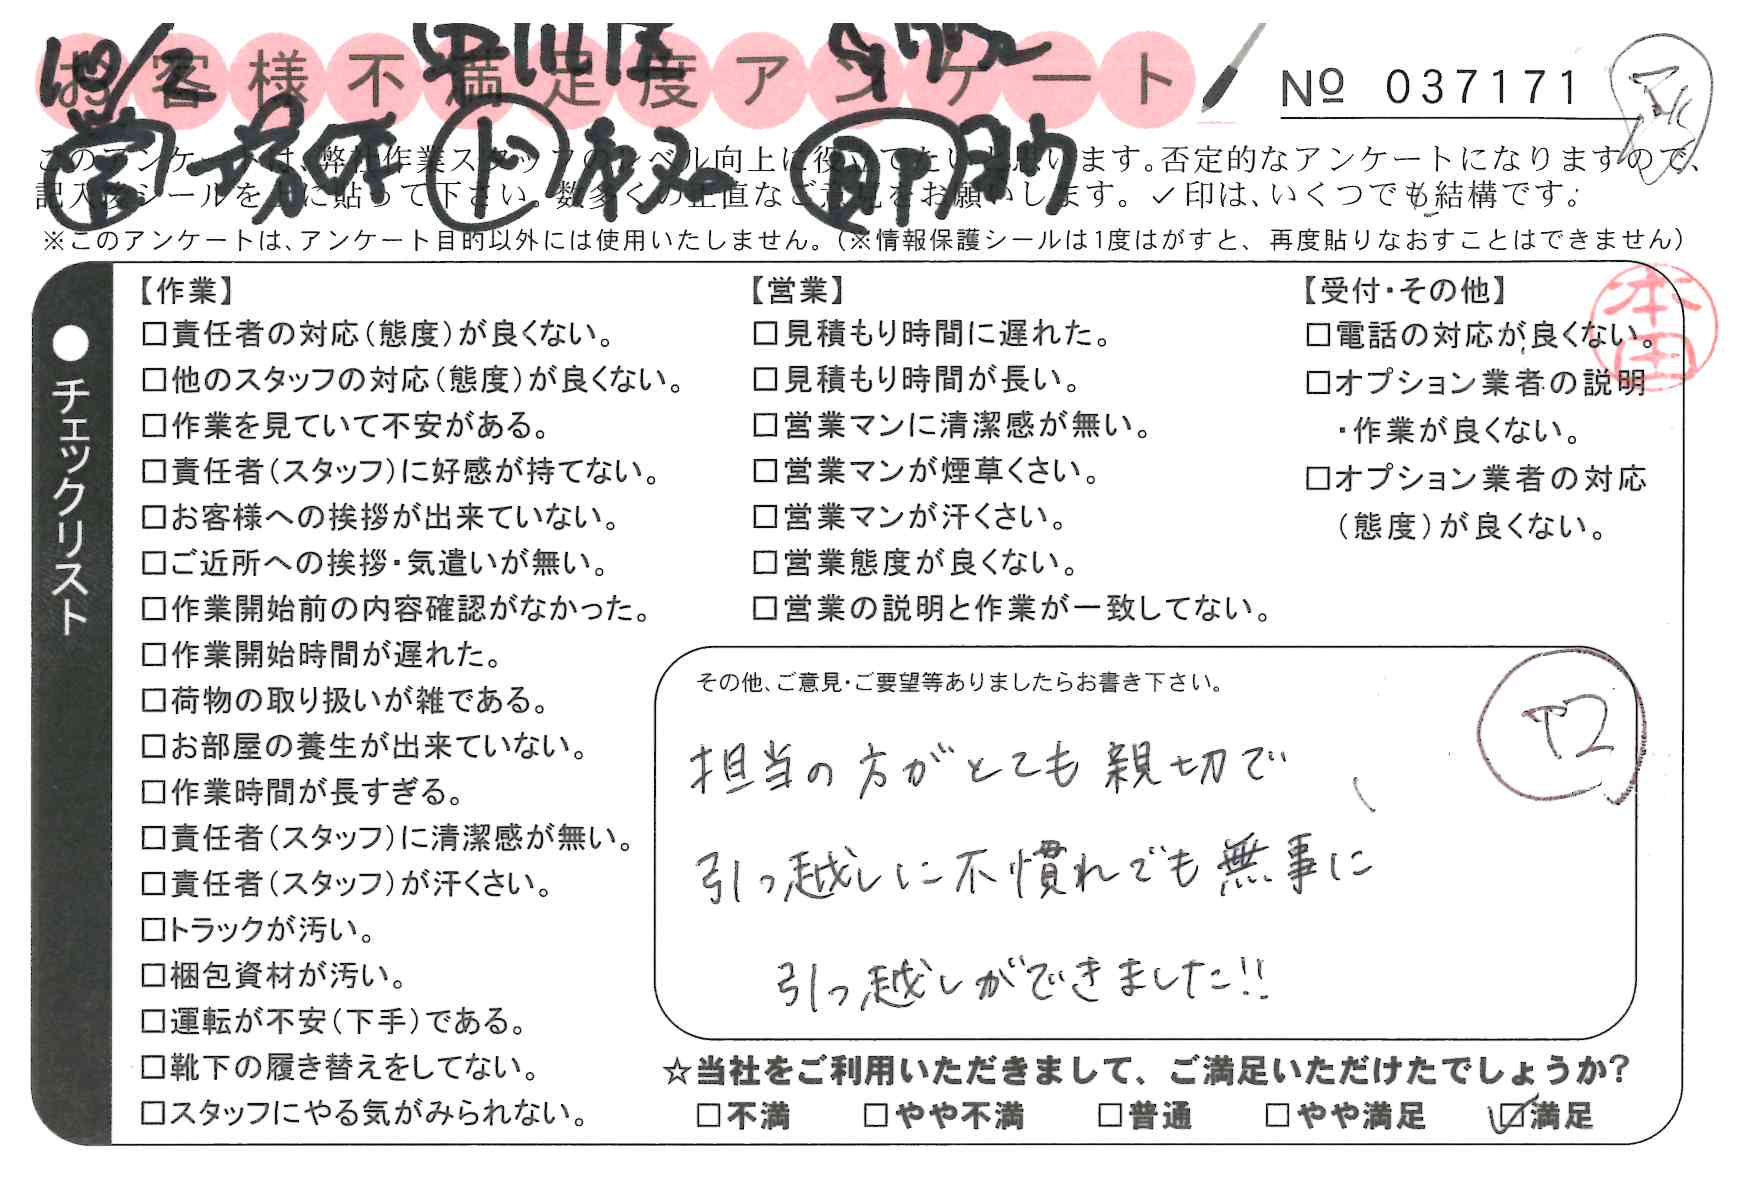 お客様不満足度アンケート
No 037171
10/2
このアンケートは、弊社作業スタッフのレベル向上に役立てたいと思います。否定的なアンケートになりますので、
記入後シールを上に貼って下さい。数多くの正直なご意見をお願いします。✓印は、いくつでも結構です。
※このアンケートは、アンケート目的以外には使用いたしません。（※情報保護シールは1度はがすと、再度貼りなおすことはできません）
本田
●チェックリスト
【作業】
□責任者の対応（態度）が良くない。
□他のスタッフの対応（態度）が良くない。
□作業を見ていて不安がある。
□責任者（スタッフ）に好感が持てない。
□お客様への挨拶が出来ていない。
□ご近所への挨拶・気遣いが無い。
□作業開始前の内容確認がなかった。
□作業開始時間が遅れた。
□荷物の取り扱いが雑である。
□お部屋の養生が出来ていない。
□作業時間が長すぎる。
□責任者（スタッフ）に清潔感が無い。
□責任者（スタッフ）が汗くさい。
□トラックが汚い。
□梱包資材が汚い。
□運転が不安（下手）である。
□靴下の履き替えをしてない。
□スタッフにやる気がみられない。
【営業】
□見積もり時間に遅れた。
□見積もり時間が長い。
□営業マンに清潔感が無い。
□営業マンが煙草くさい。
□営業マンが汗くさい。
□営業態度が良くない。
□営業の説明と作業が一致してない。
【受付・その他】
□電話の対応が良くない。
□オプション業者の説明
・作業が良くない。
□オプション業者の対応
（態度）が良くない。
その他、ご意見・ご要望等ありましたらお書き下さい。
担当の方がとても親切で
引っ越しに不慣れでも無事に
引っ越しができました!!
☆当社をご利用いただきまして、ご満足いただけたでしょうか？
□不満 □やや不満 □普通 □やや満足 ☑満足